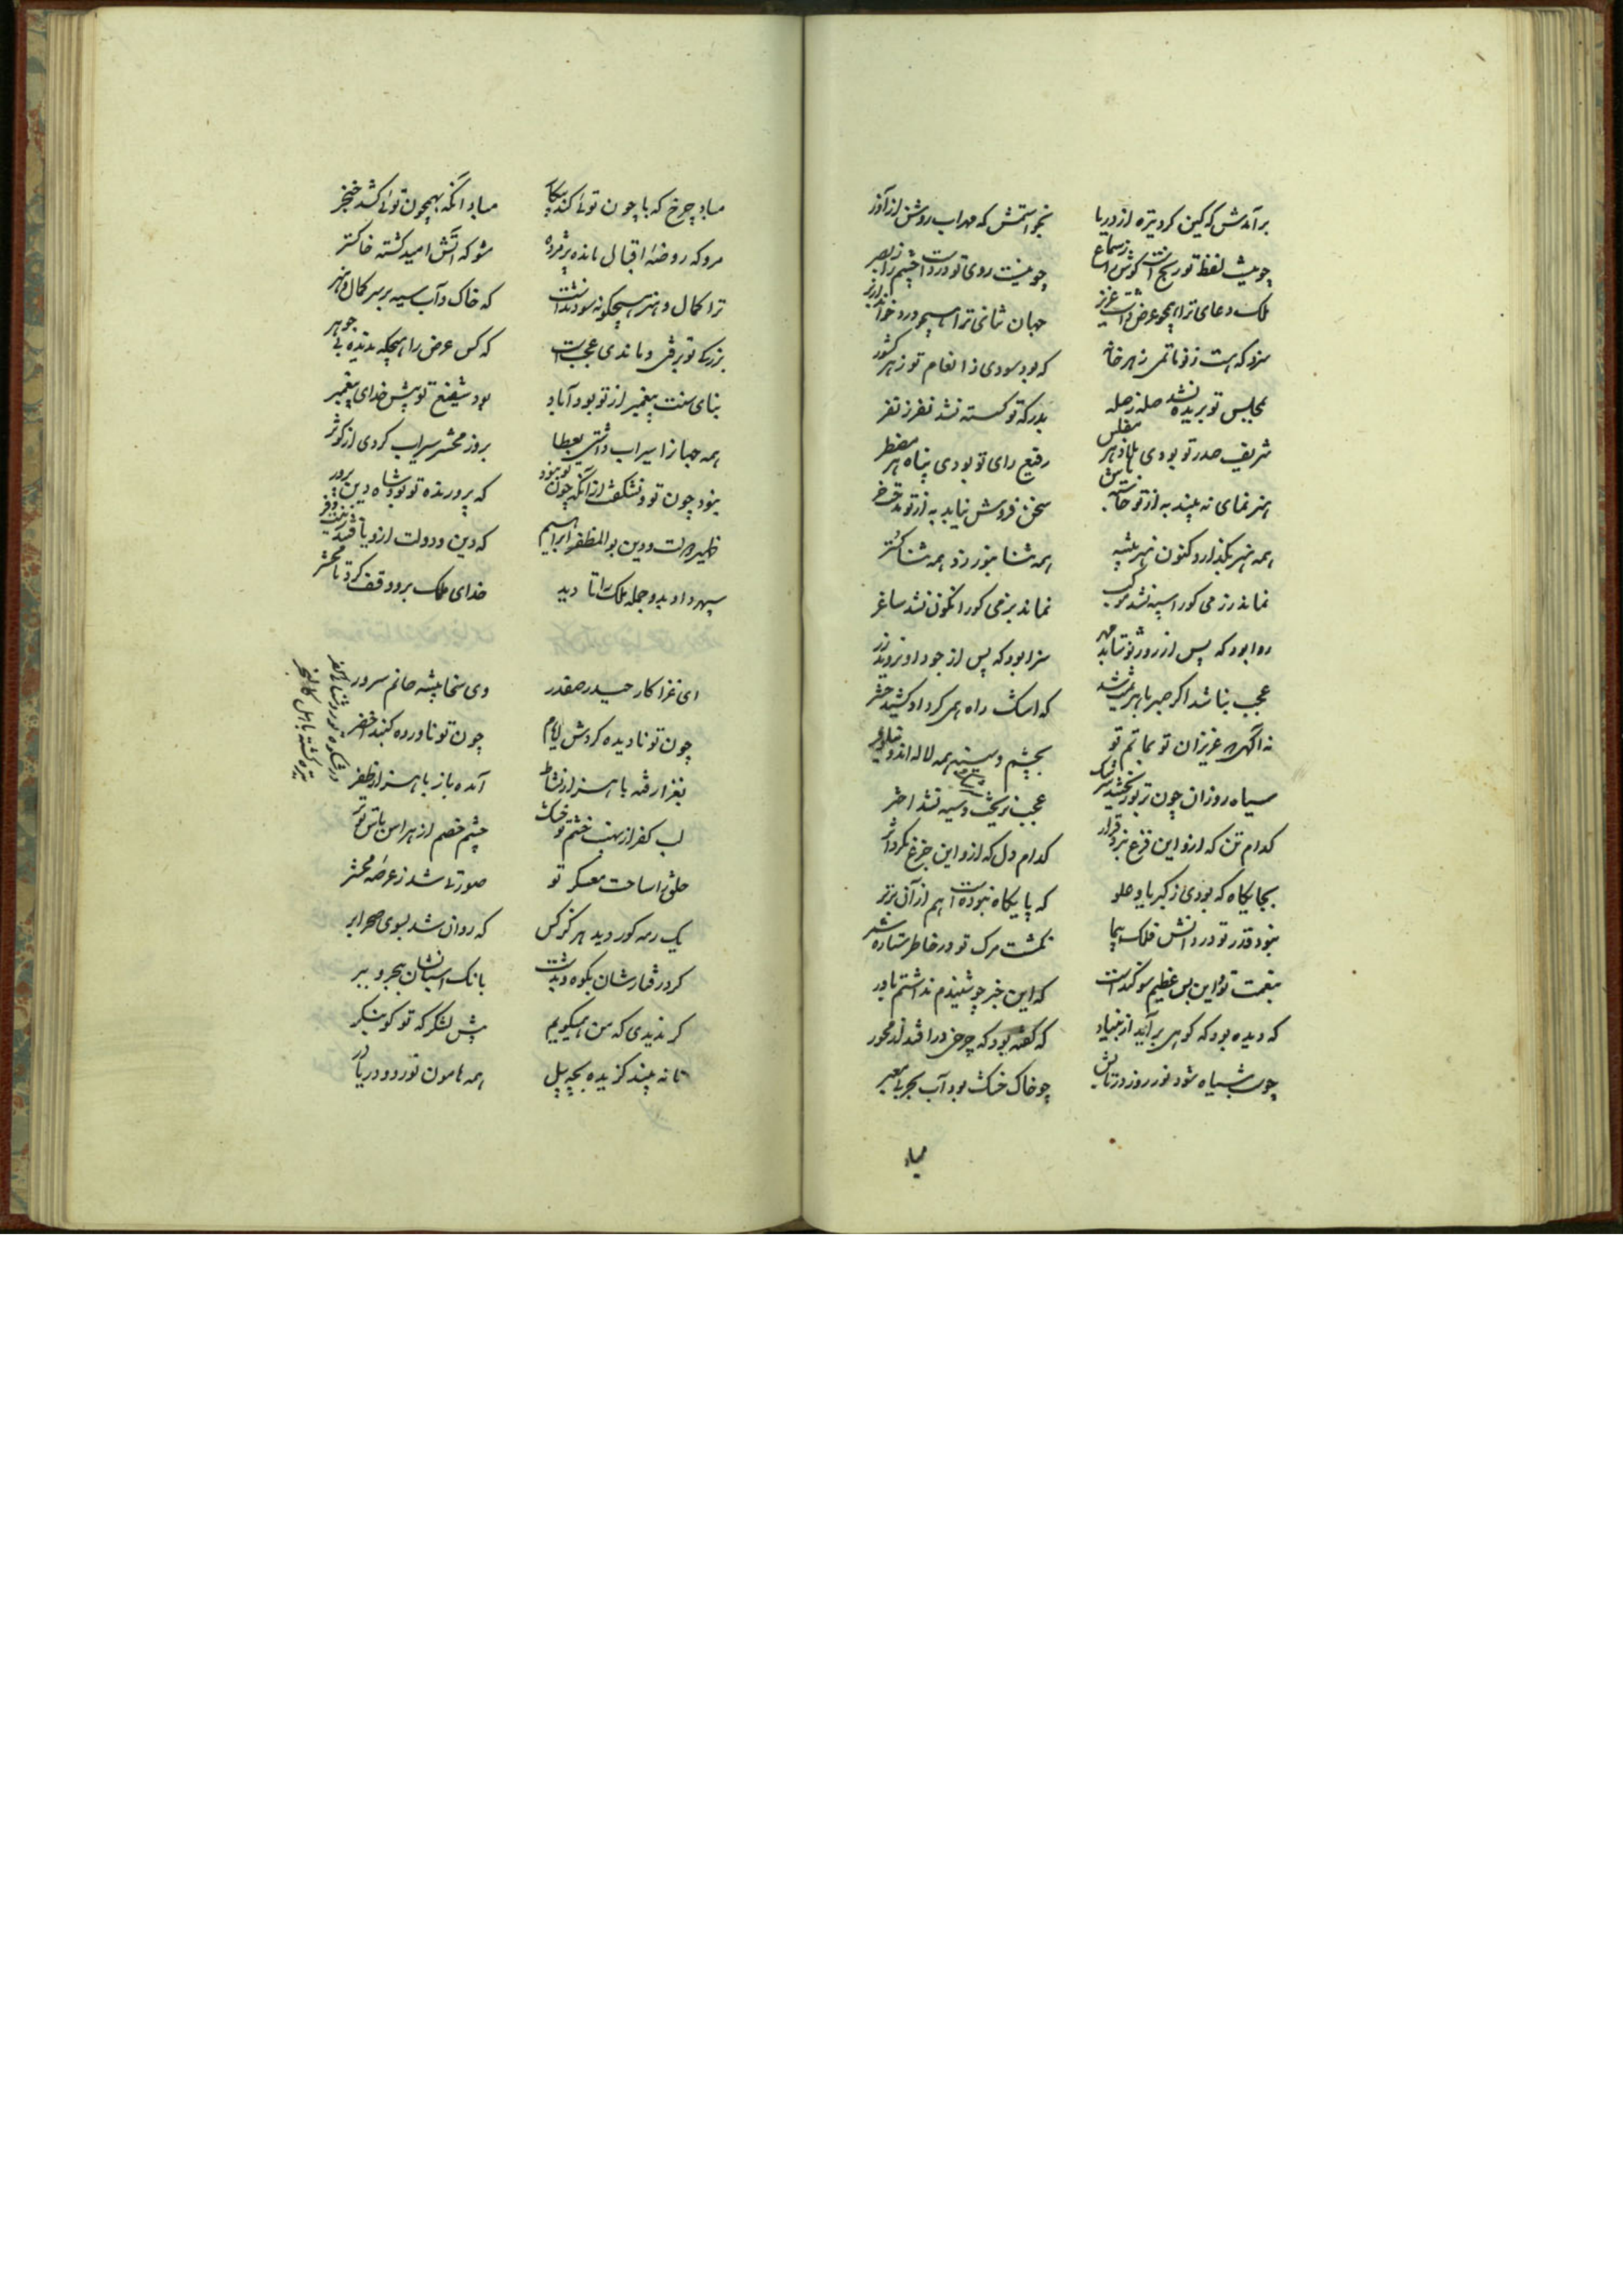 برآمدش که کین کرد تیره از دریا نخواستمش که مهراب روشن از آذر
چو نیست لفظ تو رنجست گوش را ز سماع چو نیست روی تو دردست چشم را ز بصر
ملک دعای ترا همچو عرض داشت عزیز جهان ثنای ترا همچو ورد خواند از بر
سزد که هست ز تو ماتمی ز هر خانه که بود سودی ز انعام تو ز هر کشور
بمجلس تو بریده نشد صله ز صله بدرگه تو گسسته نشد نفر ز نفر
شریف صدر تو بودی ملاذ هر مفلس رفیع رای تو بودی پناه هر مضطر
هنر نمای نه بیند به از تو خاتمش سخن فروش نیابد به از تو مدحت خر
همه هنر بگذارد کنون هنر پیشه همه ثنا بنوردد همه ثنا گستر
نماند رزمی کورا سیه نشد موکب نماند بزمی کورا نگون نشد ساغر
روا بود که پس از روز تو نتابد مهر سزا بود که پس از جود او نروید زر
عجب نباشد اگر صبر ما هزیمت شد که اشک راه همی کرد او کشید حشر
نه آگهی و عزیزان تو بماتم تو بچشم و سینه همه لاله اند و نیلوفر
سیاه روزان چون تر بود نبخشد اشک عجب نریخت و سیه نشد اختر
کدام تن که ازو این فزع نبرد قرار کدام دل که ازو این جزع نکرد اثر
بجایگاه که بودی ز کبریا و علو که پایگاه نبوده است هم از آن برتر
نبود قدر تو در دانش فلک پیما نگشت مرگ تو در خاطر ستاره شمر
بنعمت تو و این بس عظیم سوگندست که این خبر چو شنیدم نداشتم باور
که دیده بود که کوهی برآید از بنیاد که گفته بود که چرخی در افتد از محور
چو شب سیاه شود نور روز در تابش چو خاک خشک بود آب بحر بی معبر
مباد
مباد چرخ که با چون توئی کند پیکار مباد آنکه بهمچون توئی کشد خنجر
مرو که روضهٔ اقبال مانده پژمرده مشو که آتش امید گشته خاکستر
ترا کمال و هنر هیچگونه سود نداشت که خاک و آب سیه بر سر کمال و هنر
بزرگ تو برفتی و ماندی عجب است که کس عرض را هیچگه ندیده بی جوهر
بنای سنت پیغمبر از تو بود آباد بود شفیع تو پیش خدای پیغمبر
همه جهانرا سیراب داشتی بعطا بروز محشر سیراب گردی از کوثر
نبود چون تو و نشگفت از آنکه چون تو نبود که پرورنده تو بود شاه دین پرور
ظهیر دولت و دین بوالمظفر ابراهیم که دین و دولت ازو یافتند زینت و فر
سپهر داد بدو جمله ملک را تا دید خدای ملک برو وقف کرد تا محشر
ای غزا کار حیدر صفدر وی سخا پیشه حاتم سرور
در شکوه تو روشنایی کفر تیره گشته باهل کالنجر
چون تو نادیده گردش ایام چون تو ناورده گنبد اخضر
بغزا رفته با هزار نشاط آمده باز با هزار ظفر
لب کفر از نهیب خشم تو خشک چشم خصم از هراس باس تو تر
خلق را ساحت معسکر تو صورتی شد ز عرصه محشر
یک رمه کور دید هر کرکس که روان شد بسوی صحرا بر
کرد رفتارشان بکوه و بدشت بانگ اسبانشان ببحر و ببر
گر ندیدی که من همیگویم پیش لشکر که تو کو بنگر
تا نه بیند گزیده بچه پیل همه هامون نورد و دریا در